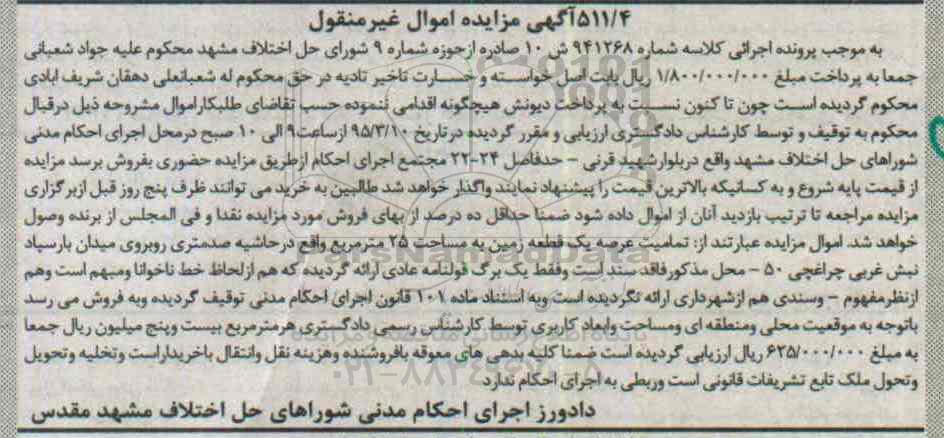 ۵۱۱/۴آگهی مزایده اموال غیرمنقول
به موجب پرونده اجرائی کلاسه شماره ۹۴۱۲۶۸ ش ۱۰ صادره ازحوزه شماره ۹ شورای حل اختلاف مشهد محکوم علیه جواد شعبانی
جمعا به پرداخت مبلغ ۱/۸۰۰/۰۰۰/۰۰۰ ریال بابت اصل خواسته و خسارت تاخیر تادیه در حق محکوم له شعبانعلی دهقان شریف ابادی
محکوم گردیده است چون تا کنون نسبت به پرداخت دیونش هیچگونه اقدامی ننموده حسب تقاضای طلبکاراموال مشروحه ذیل درقبال
محکوم به توقیف و توسط کارشناس دادگستری ارزیابی و مقرر گردیده درتاریخ ۹۵/۳/۱۰ ازساعت۹ الی ۱۰ صبح درمحل اجرای احکام مدنی
شوراهای حل اختلاف مشهد واقع دربلوارشهید قرنی – حدفاصل ۲۴-۲۲ مجتمع اجرای احکام ازطریق مزایده حضوری بفروش برسد مزایده
از قیمت پایه شروع و به کسانیکه بالاترین قیمت را پیشنهاد نمایند واگذار خواهد شد طالبین به خرید می توانند ظرف پنج روز قبل ازبرگزاری
مزایده مراجعه تا ترتیب بازدید آنان از اموال داده شود ضمنا حداقل ده درصد از بهای فروش مورد مزایده نقدا و فی المجلس از برنده وصول
خواهد شد. اموال مزایده عبارتند از: تمامیت عرصه یک قطعه زمین به مساحت ۲۵ مترمربع واقع درحاشیه صدمتری روبروی میدان بارسپاد
نبش غربی چراغچی ۵۰ – محل مذکورفاقد سند است وفقط یک برگ قولنامه عادی ارائه گردیده که هم ازلحاظ خط ناخوانا ومبهم است وهم
ازنظرمفهوم – وسندی هم ازشهرداری ارائه نگردیده است وبه استناد ماده ۱۰۱ قانون اجرای احکام مدنی توقیف گردیده وبه فروش می رسد
باتوجه به موقعیت محلی ومنطقه ای ومساحت وابعاد کاربری توسط کارشناس رسمی دادگستری هرمترمربع بیست وپنج میلیون ریال جمعا
به مبلغ ۶۲۵/۰۰۰/۰۰۰ ریال ارزیابی گردیده است ضمنا کلیه بدهی های معوقه بافروشنده وهزینه نقل وانتقال باخریداراست وتخلیه وتحویل
وتحول ملک تابع تشریفات قانونی است وربطی به اجرای احکام ندارد.
دادورز اجرای احکام مدنی شوراهای حل اختلاف مشهد مقدس
ParsNamadData